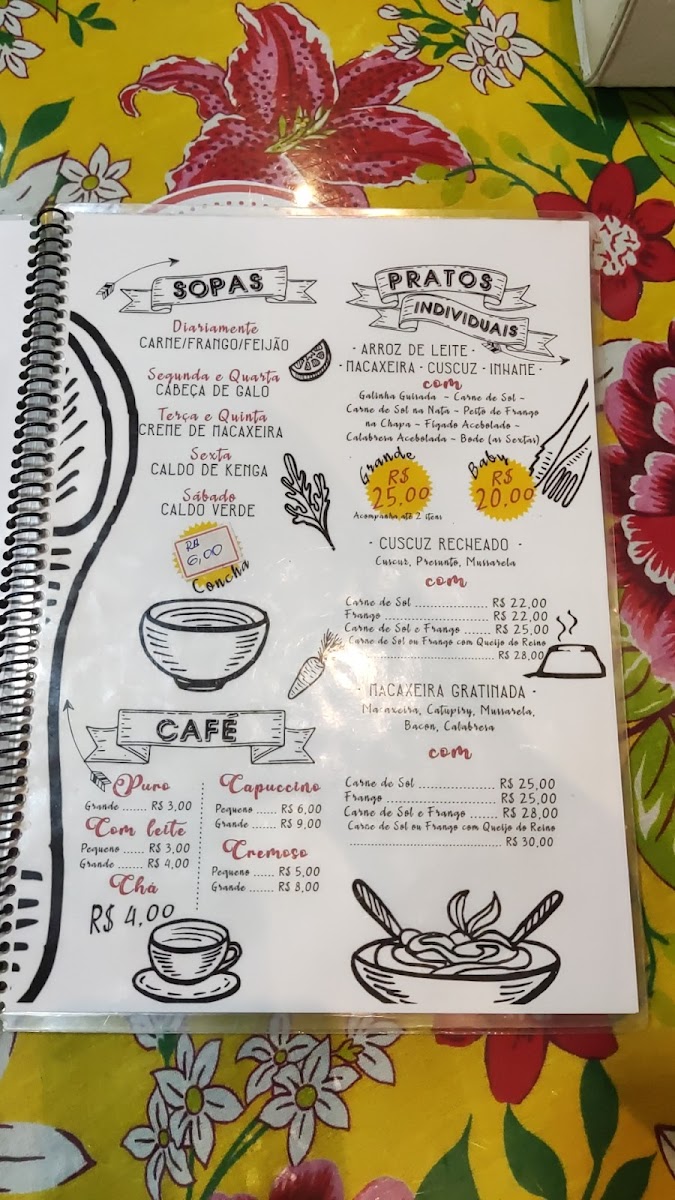 SOPAS
Diariamente
CARNE/FRANGO/FEIJÃO
Segunda e Quarta
CABEÇA DE GALO
Terça e Quinta
CREME DE MACAXEIRA
Sexta
CALDO DE KENGA
Sábado
CALDO VERDE
R$ 6,00
Concha
CAFÉ
Puro
Grande ...... R$ 3,00
Com leite
Pequeno ...... R$ 3,00
Grande ....... R$ 4,00
Chá
R$ 4,00
Capuccino
Pequeno ..... R$ 6,00
Grande ...... R$ 9,00
Cremoso
Pequeno ...... R$ 5,00
Grande ...... R$ 8,00
PRATOS
INDIVIDUAIS
· ARROZ DE LEITE ·
· MACAXEIRA · CUSCUZ · INHAME ·
com
Galinha Guisada - Carne de Sol -
Carne de Sol na Nata - Peito de Frango
na Chapa - Fígado Acebolado -
Calabresa Acebolada - Bode (as Sextas)
Grande
R$ 25,00
Acompanha até 2 itens
Baby
R$ 20,00
· CUSCUZ RECHEADO ·
Cuscuz, Presunto, Mussarela
com
Carne de Sol .................... R$ 22,00
Frango ............................ R$ 22,00
Carne de Sol e Frango ....... R$ 25,00
Carne de Sol ou Frango com Queijo do Reino
.................................... R$ 28,00
· MACAXEIRA GRATINADA ·
Macaxeira, Catupiry, Mussarela,
Bacon, Calabresa
com
Carne de Sol ..................... R$ 25,00
Frango .............................. R$ 25,00
Carne de Sol e Frango ........ R$ 28,00
Carne de Sol ou Frango com Queijo do Reino
...................................... R$ 30,00